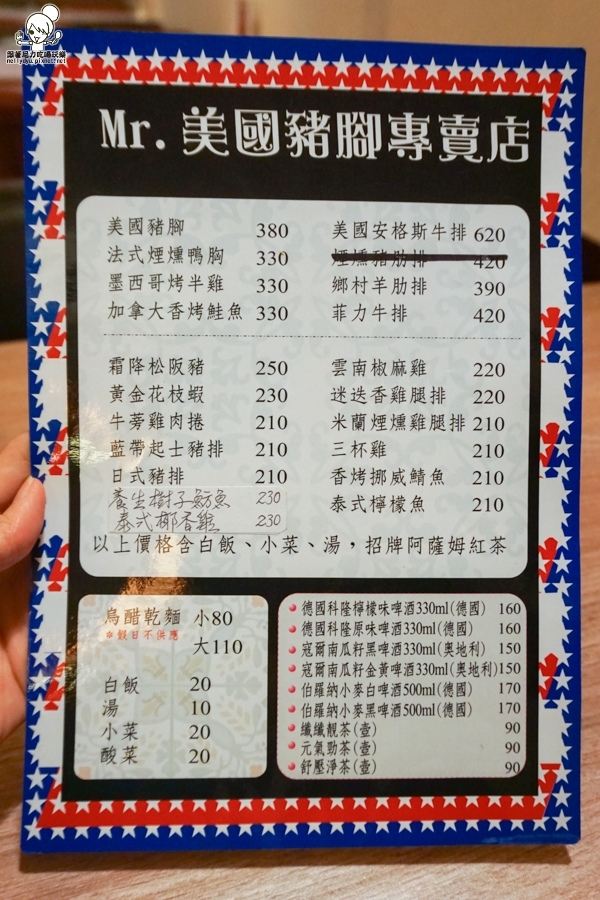 跟著尼力吃喝玩樂
nellydyu.pixnet.net
Mr.美國豬腳專賣店
美國豬腳 380
法式煙燻鴨胸 330
墨西哥烤半雞 330
加拿大香烤鮭魚 330
美國安格斯牛排 620
煙燻豬肋排 420
鄉村羊肋排 390
菲力牛排 420
霜降松阪豬 250
黃金花枝蝦 230
牛蒡雞肉捲 210
藍帶起士豬排 210
日式豬排 210
養生樹子魴魚 230
泰式椰香雞 230
雲南椒麻雞 220
迷迭香雞腿排 220
米蘭煙燻雞腿排 210
三杯雞 210
香烤挪威鯖魚 210
泰式檸檬魚 210
以上價格含白飯、小菜、湯，招牌阿薩姆紅茶
烏醋乾麵 小80
※假日不供應
大110
白飯 20
湯 10
小菜 20
酸菜 20
德國科隆檸檬味啤酒330ml(德國) 160
德國科隆原味啤酒330ml(德國) 160
寇爾南瓜籽黑啤酒330ml(奧地利) 150
寇爾南瓜籽金黃啤酒330ml(奧地利) 150
伯羅納小麥白啤酒500ml(德國) 170
伯羅納小麥黑啤酒500ml(德國) 170
纖纖靚茶(壺) 90
元氣勁茶(壺) 90
舒壓淨茶(壺) 90